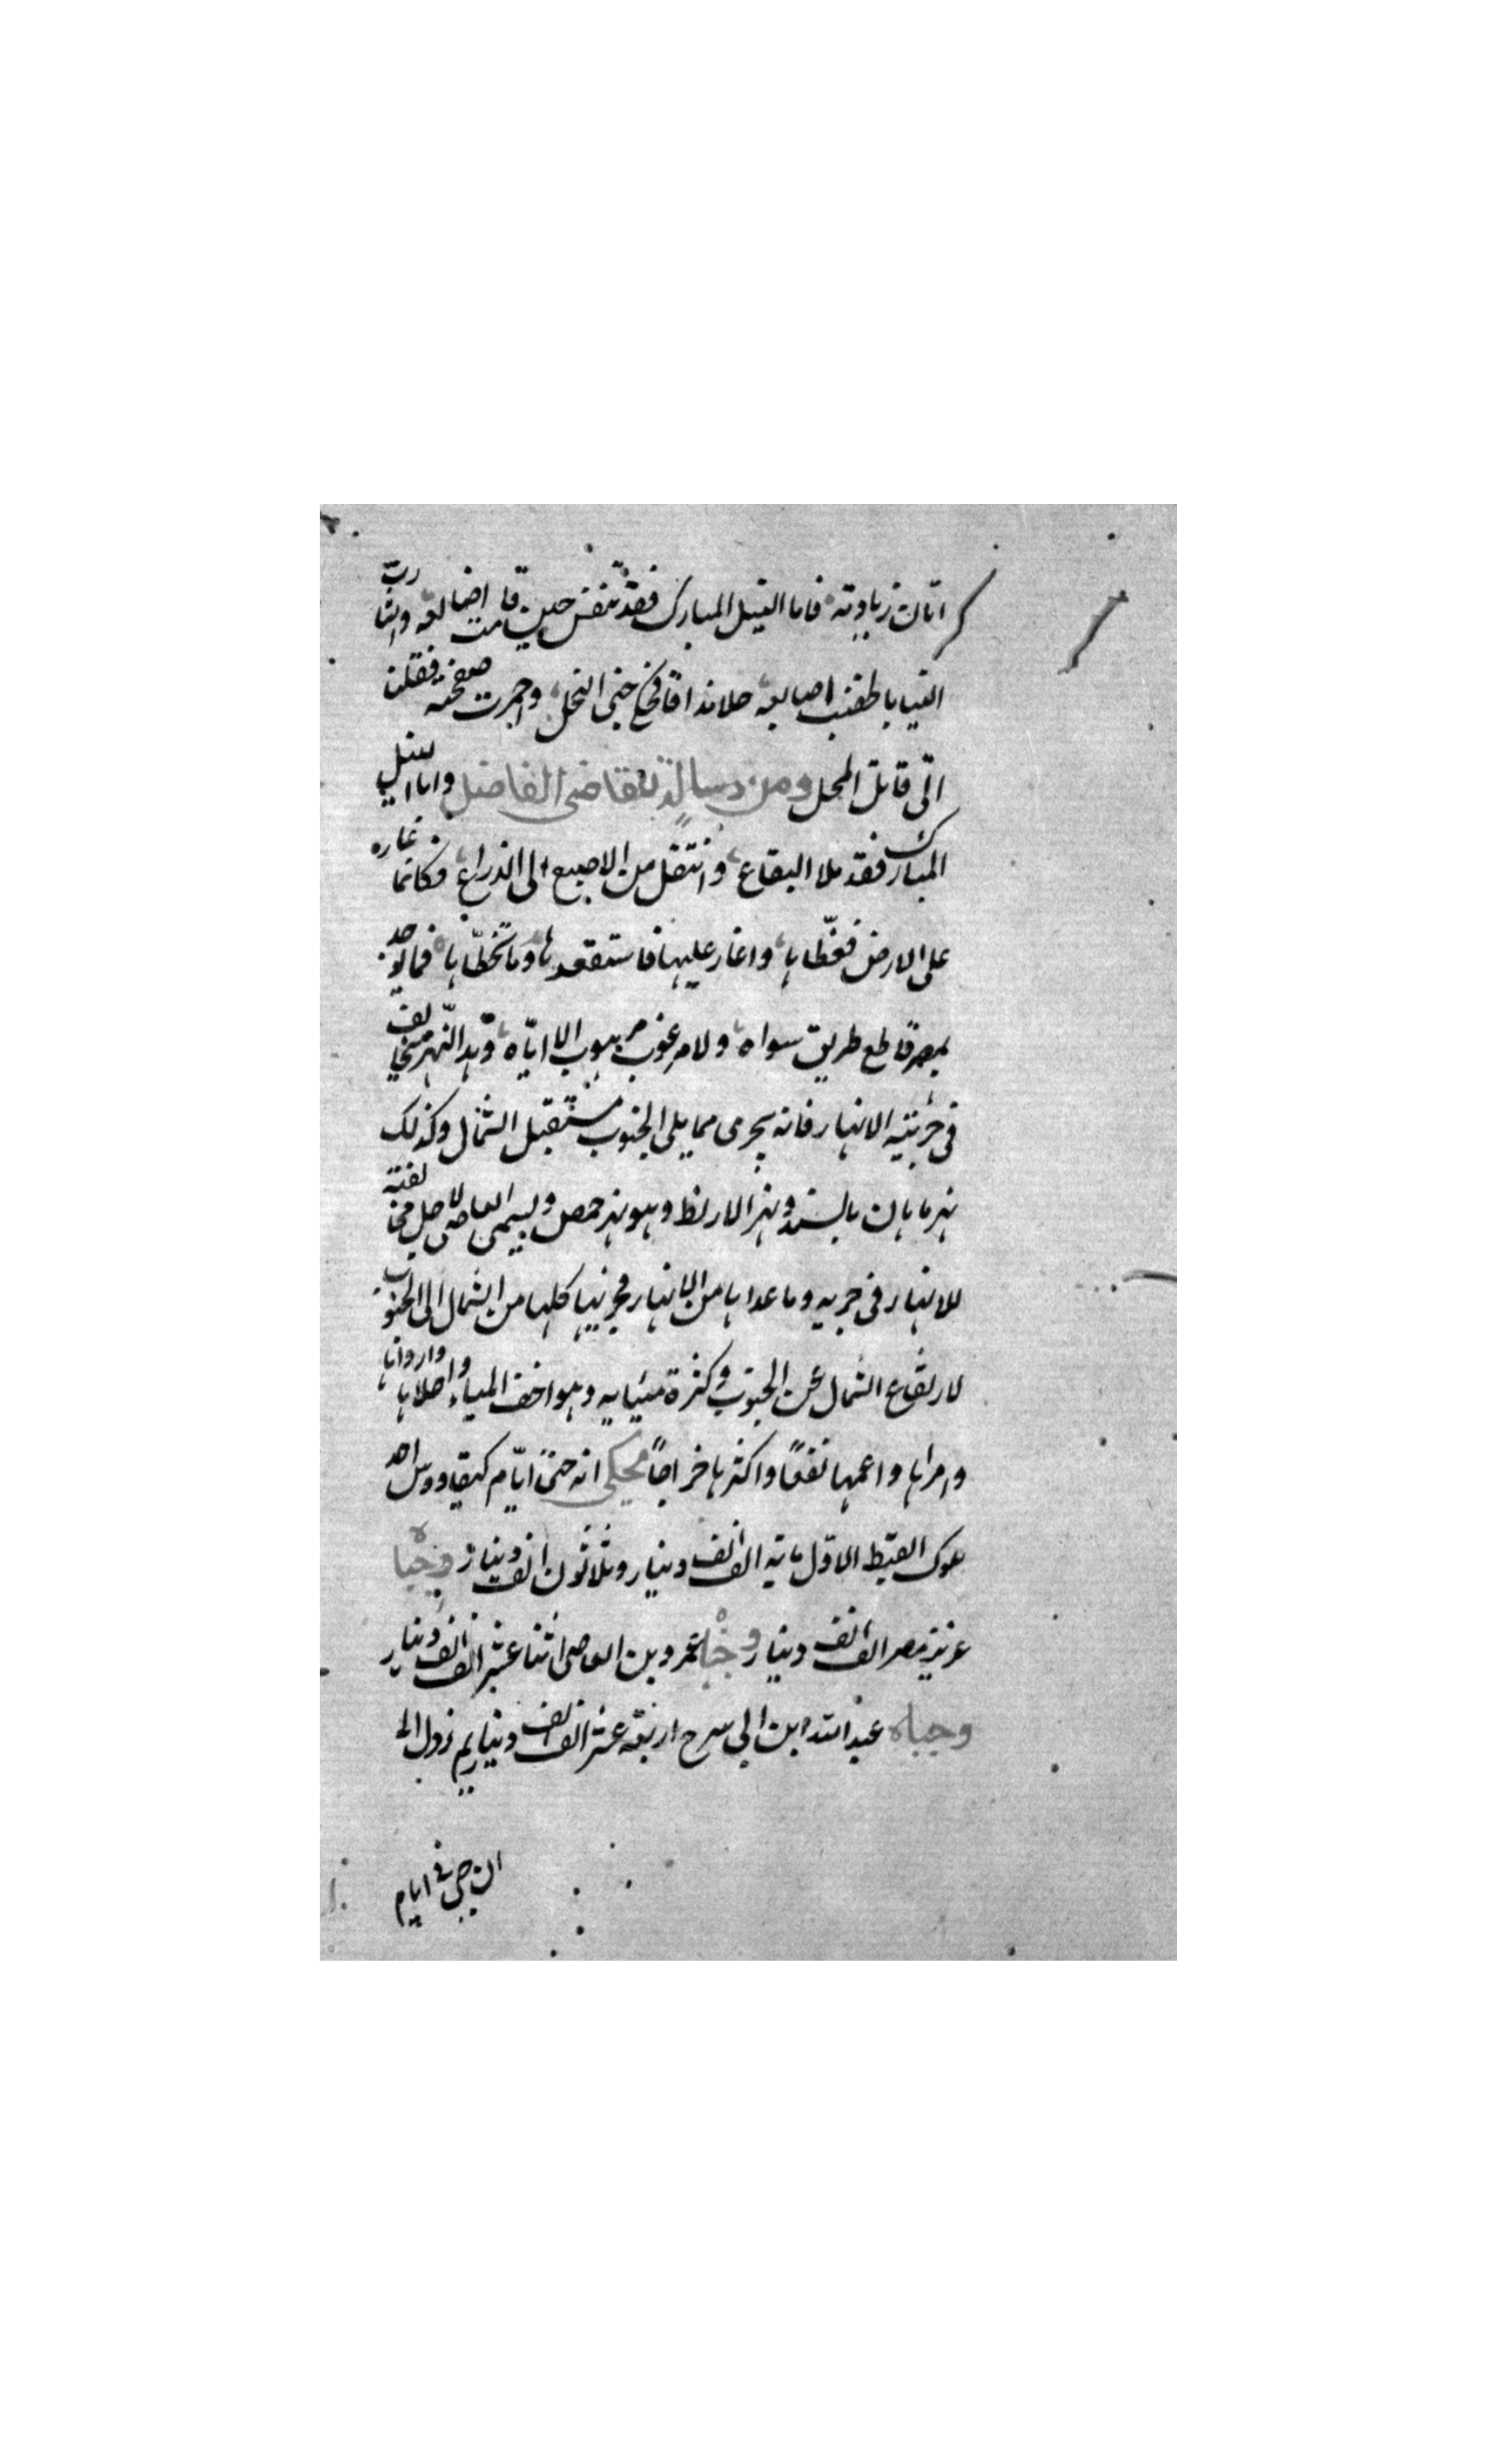 اتان زيادته فاما النيل المبارك فقد تنفس حين قامت اصابعه واشارت
الينا باطخنب اصابعه حلا مذاقا فحكى جنى النحل واحمرت صفحته فقلنا
انى قاتل المحل ومن رسالة للقاضى الفاضل واما النيل
المبارك فقد ملا البقاع وانتقل من الاصبع الى الذراع فكانما غاره
على الارض فغطاها واغار عليها فاستقعدها وما تخطاها فما يوجد
بمصر قاطع طريق سواه ولا مرغوب مرهوب الا اياه وهذا النهر مخالف
فى جريته الانهار فانه يجرى مما يلى الجنوب مستقبل الشمال وكذلك
نهر ماهان بالسند ونهر الارنط وهو نهر حمص ويسمى العاصى لاجل مخالفته
للانهار فى جريه وما عداها من الانهار فجريتها كلها من الشمال الى الجنوب
لارتفاع الشمال عن الجنوب وكثرة مياهه وهو اخف المياه واحلاها وارواها
وامراها واعمها نفعا واكثرها خراجا يحكى انه جبى ايام كيقاووس احد
ملوك القبط الاول ماية الف الف دينار وثلاثون الف دينار وجباه
عزيز مصر الف الف دينار وجباه عمرو بن العاصى اثنا عشر الف الف دينار
وجباه عبد الله ابن ابى سرح اربعة عشر الف الف دينار ثم نزول الى
ان جبى فى ايام